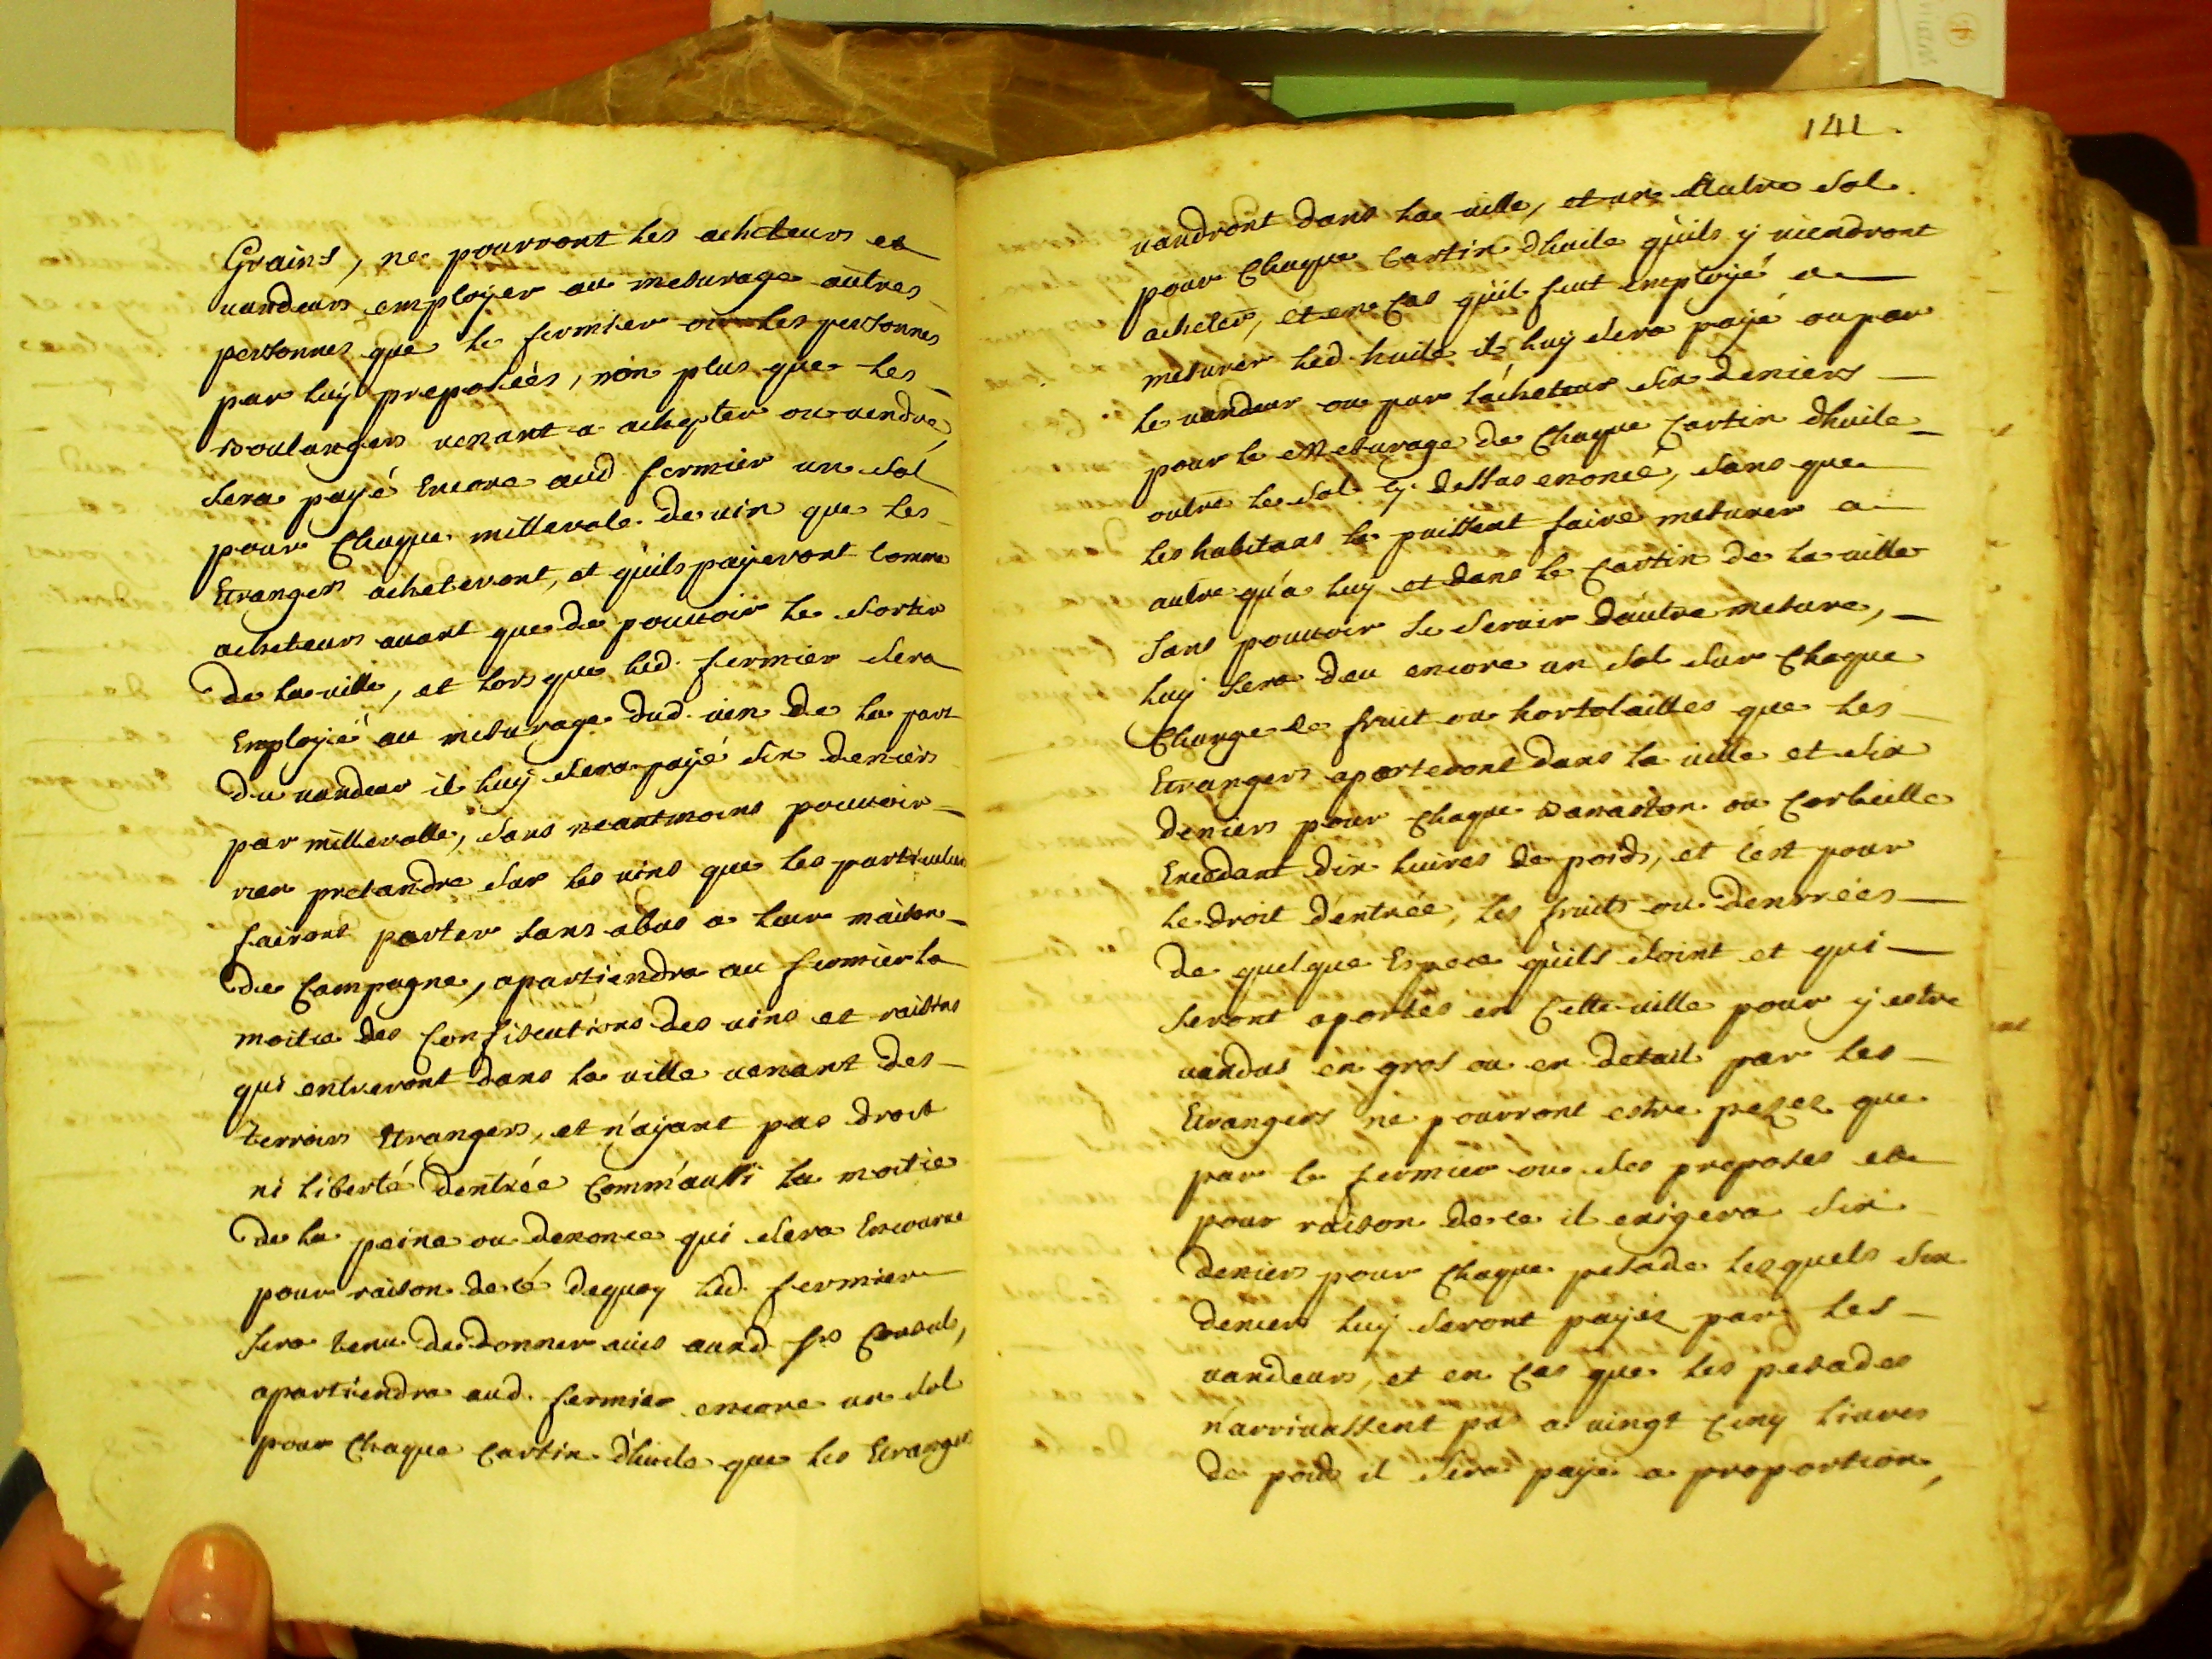 Grains, ne pourront les acheteurs et
vandeurs employer au mesurage autres
personnes que le fermier ou les personnes
par luy preposéés, non plus que les
Boulangers venant a achepter ou vendre,
sera payé Encore aud. fermier un sol
pour Chaque millerole de vin que les
Etrangers acheteront, et qu'ils payeront comme
acheteurs avant que de pouvoir le sortir
de la ville, et lors que led. fermier sera
Employé au mesurage dud. vin de la part
du vandeur il luy sera payé six deniers
par millerolle, sans neantmoins pouvoir
rien pretandre sur les vins que les particuliers
fairont porter sans abus a leur maison
de Campagne, apartiendra au fermier la
moitie des Confiscations des vins et raisins
qui entreront dans la ville venant des
terroirs Etrangers, et n'ayant pas droit
ni liberté d'entrée Comm'aussi la moitie
de la peine ou denonce qui sera Encourue
pour raison de cé dequoy led. fermier
sera tenu de donner avis auxd. srs Consuls,
apartiendra aud. fermier encore un sol
pour Chaque Cartin d'huile que les Etrangers
141.
vandront dans la ville, et un Autre sol
pour Chaque Cartin d'huile qu'ils y viendront
acheter, et en Cas qu'il feut employé a
mesurer led. huile il luy sera payé ou par
le vandeur ou par l'acheteur six deniers
pour le Mesurage de Chaque Cartin d'huile
outre le sol cy dessus enoncé, sans que
les habitans le puissent faire mesurer a
autre qu'a luy et dans le Cartin de la ville
sans pouvoir se servir d'autre mesure,
luy sera deu encore un sol sur Chaque
Charge de fruit ou hortolailles que les
Etrangers aporteront dans la ville et six
deniers pour Chaque Banaston ou Corbeille
Excedant dix livres de poids, et c'est pour
le droit d'entrée, les fruits ou denrrées
de quelque Espece qu'ils soint et qui
seront aportés en Cette ville pour y estre
vandus en gros ou en detail par les
Etrangers ne pourront estre pesez que
par le fermier ou ses preposes et
pour raison de ce il exigera six
deniers pour Chaque pesade lesquels six
deniers luy seront payez par les
vandeurs, et en Cas que les pesades
n'arrivassent pas a vingt Cinq livres
de poids il sera payé a proportion,